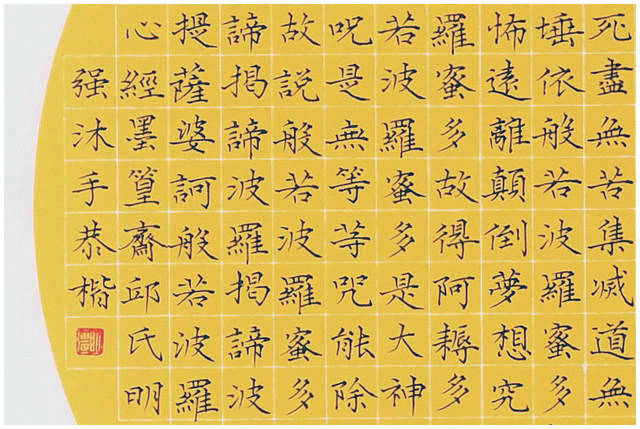 死盡無苦集滅道無
埵依般若波羅蜜多
怖遠離顛倒夢想究
羅蜜多故得阿耨多
若波羅蜜多是大神
呪是無等等咒能除
故說般若波羅蜜多
諦揭諦波羅揭諦波
提薩婆訶般若波羅
心經墨篁齋邱氏明
强沐手恭楷